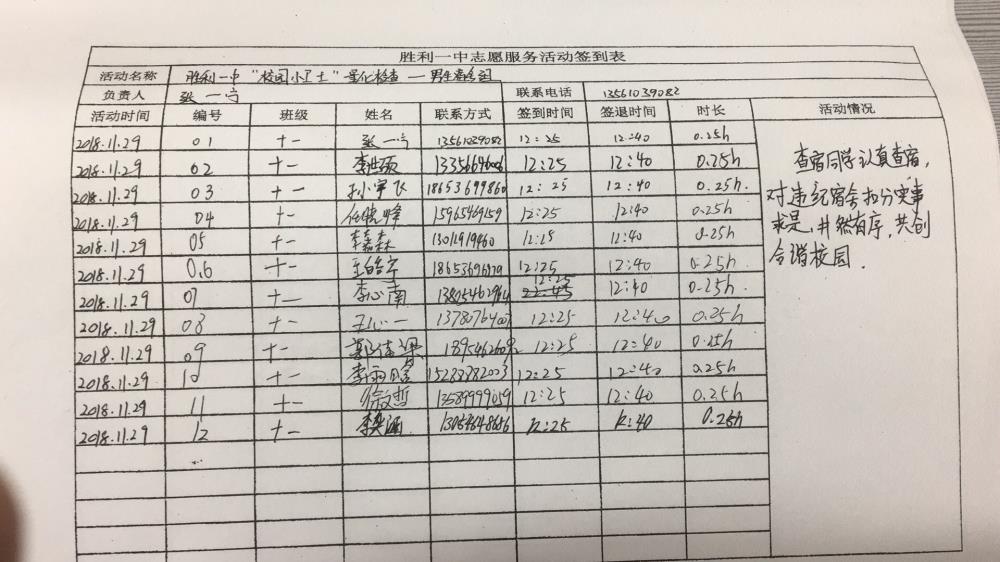 胜利一中志愿服务活动签到表
活动名称 胜利一中“校园小卫士”量化检查 — 男生宿舍组
负责人 张一宁 联系电话 13561039082
活动时间 编号 班级 姓名 联系方式 签到时间 签退时间 时长 活动情况
2018.11.29 01 十一 张一宁 13561039082 12:25 12:40 0.25h
2018.11.29 02 十一 12:25 12:40 0.25h
2018.11.29 03 十一 孙宇飞 18653699860 12:25 12:40 0.25h.
2018.11.29 04 十一 任晓峰 15965469159 12:25 12:40 0.25h
2018.11.29 05 十一 李嘉森 13012919460 12:25 12:40 0.25h
2018.11.29 06 十一 12:25 12:40 0.25h
2018.11.29 07 十一 李心南 12:25 12:40 0.25h
2018.11.29 08 十一 王心一 12:25 12:40 0.25h
2018.11.29 09 十一 12:25 12:40 0.25h
2018.11.29 10 十一 李雨晗 12:25 12:40 0.25h
2018.11.29 11 十一 徐文哲 13589999059 12:25 12:40 0.25h
2018.11.29 12 十一 12:25 12:40 0.25h
查宿同学认真查宿,
对违纪宿舍扣分实事
求是,井然有序,共创
和谐校园.